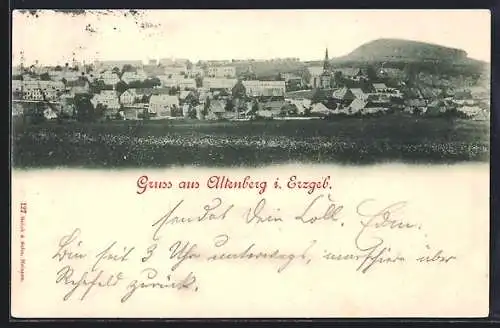 Gruss aus Altenberg i. Erzgeb.
sendet Dein Coll. Edm.
Bin seit 3 Uhr unterwegs, marschiere über
Rehefeld zurück.
127